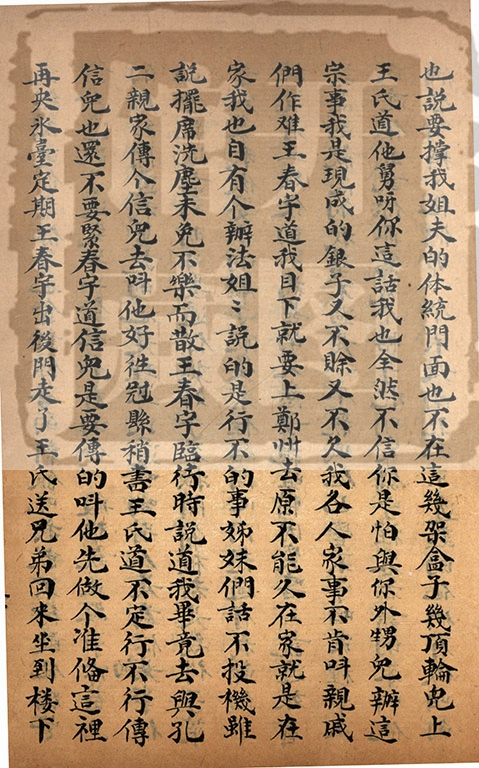 也說要撑我姐夫的体統門面也不在這幾架盒子幾頂輪皃上
王氏道他舅呀你這話我也全然不信你是怕與你外甥兒辦這
宗事我是現成的銀子又不賒又不欠我各人家事不肯呌親戚
們作难王春宇道我目下就要上鄭州去原不能久在家就是在
家我也自有个辦法姐〻說的是行不的事姊妹們話不投機雖
說擺席洗塵未免不樂而散王春宇臨行時說道我畢竟去與孔
二親家傳个信兒去呌他好徃冠縣稍書王氏道不定行不行傳
信兒也還不要緊春宇道信兒是要傳的呌他先做个准俻這裡
再央氷臺定期王春宇出後門走了王氏送兄弟回來坐到楼下